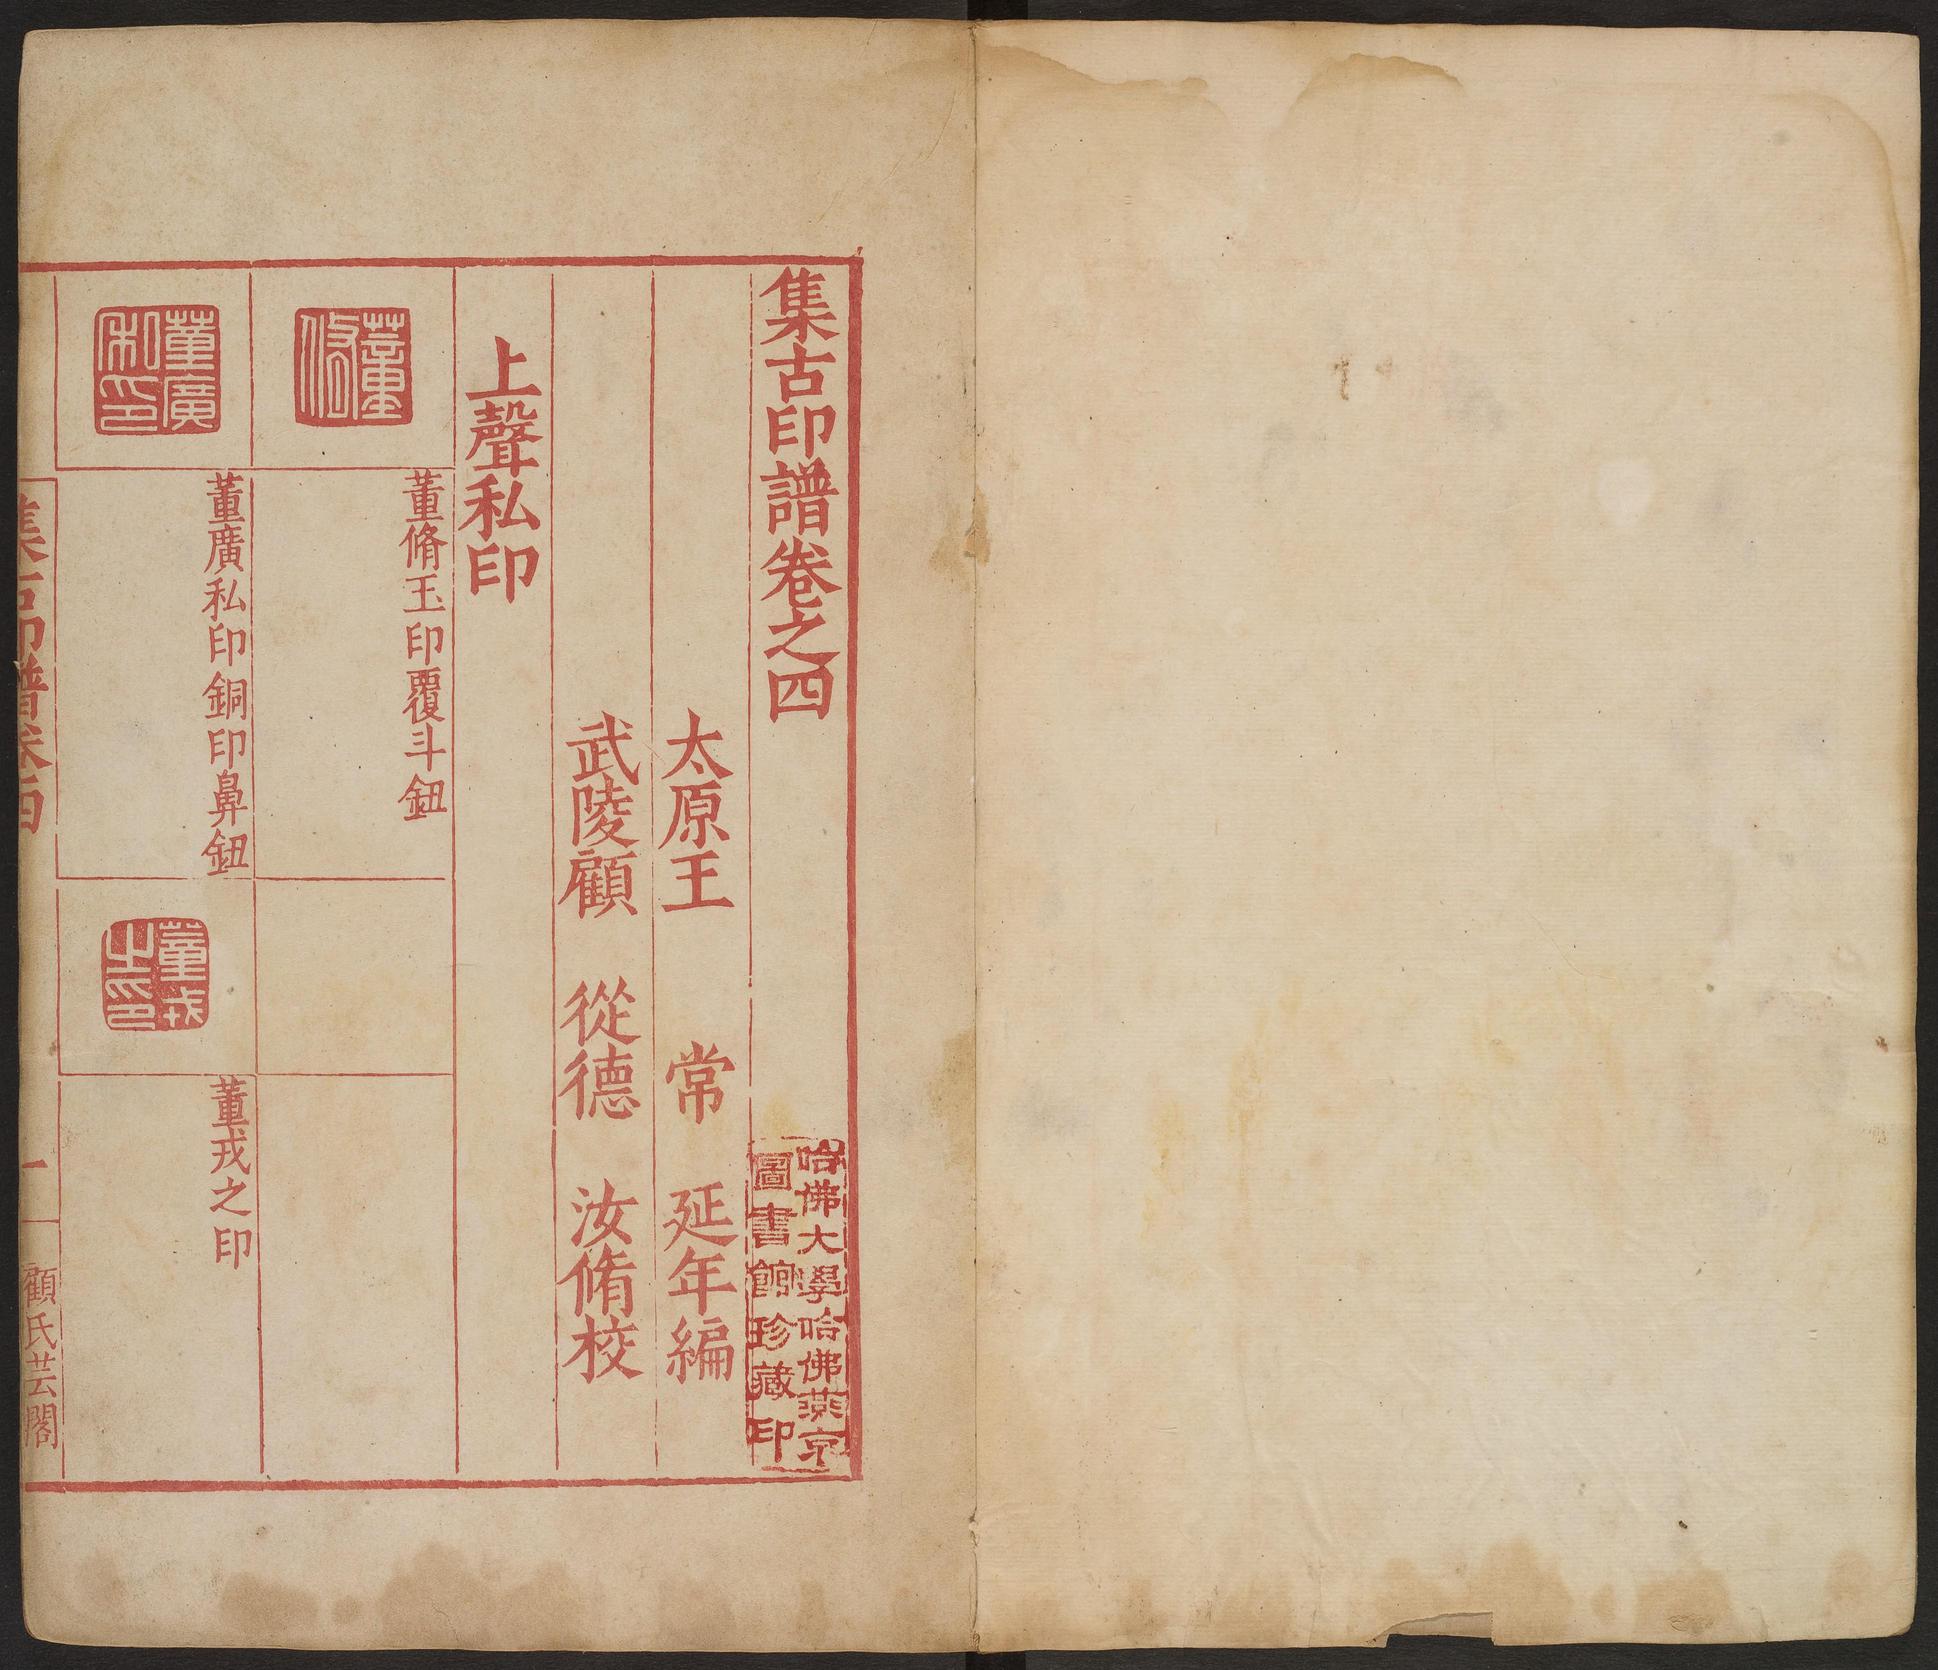 集古印譜卷之四
哈佛大學哈佛燕京
圖書館珍藏印
太原王　常　延年編
武陵顧　從德　汝脩校
上聲私印
董脩
董脩玉印覆斗鈕
董廣
私印
董廣私印銅印鼻鈕
董戎
之印
董戎之印
集古印譜卷四
一
顧氏芸閣